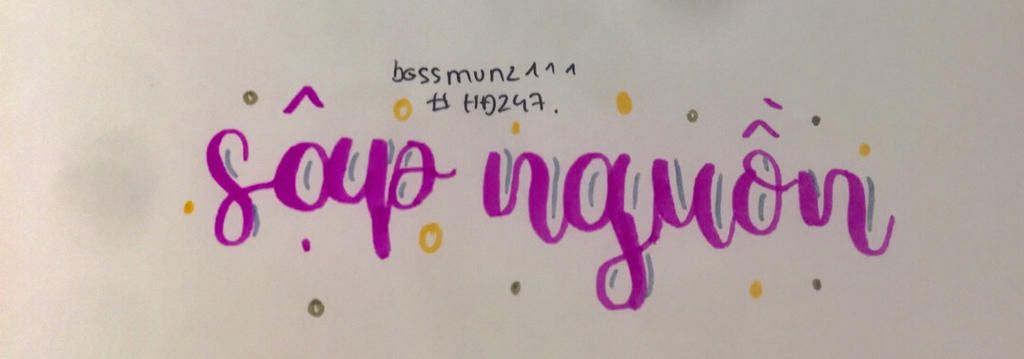 bossmunz111
# HĐ247.
sập nguồn